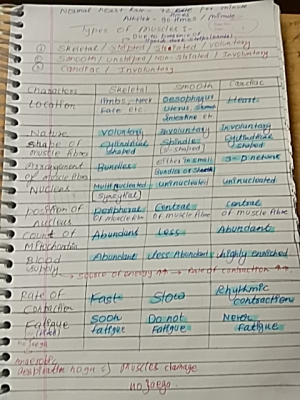 Normal Heart Rate - 72 beats per minute
Athlete - 90 times / minute
Types of Muscles :-
① Skeletal / Striped / Striated / Voluntary
② Smooth / unstriped / Non-striated / Involuntary
③ Cardiac / Involuntary
Characters Skeletal Smooth Cardiac
Location limbs, Neck Face etc Oesophagus Uterus, Intestine etc Heart
Nature Voluntary Involuntary Involuntary
Shape of muscle fibres Cylindrical shaped Spindle shaped Cylindrical shaped
of muscle fibre Bundles either in small
Nucleus Multinucleated (syncytial) Uninucleated Uninucleated
position of Nucleus Peripheral of muscle fibre Central of muscle fibre central of muscle fibre
Count of Mitochondria Abundant Less Abundant
Blood supply Abundant less Abundant highly enriched
→ Source of energy ↑↑ → Rate of contraction ↑↑
Rate of Contraction Fast Slow Rhythmic contraction
Fatigue Soon fatigue Do not Fatigue Never fatigue
Anaerobic
muscles damage
ho jaega